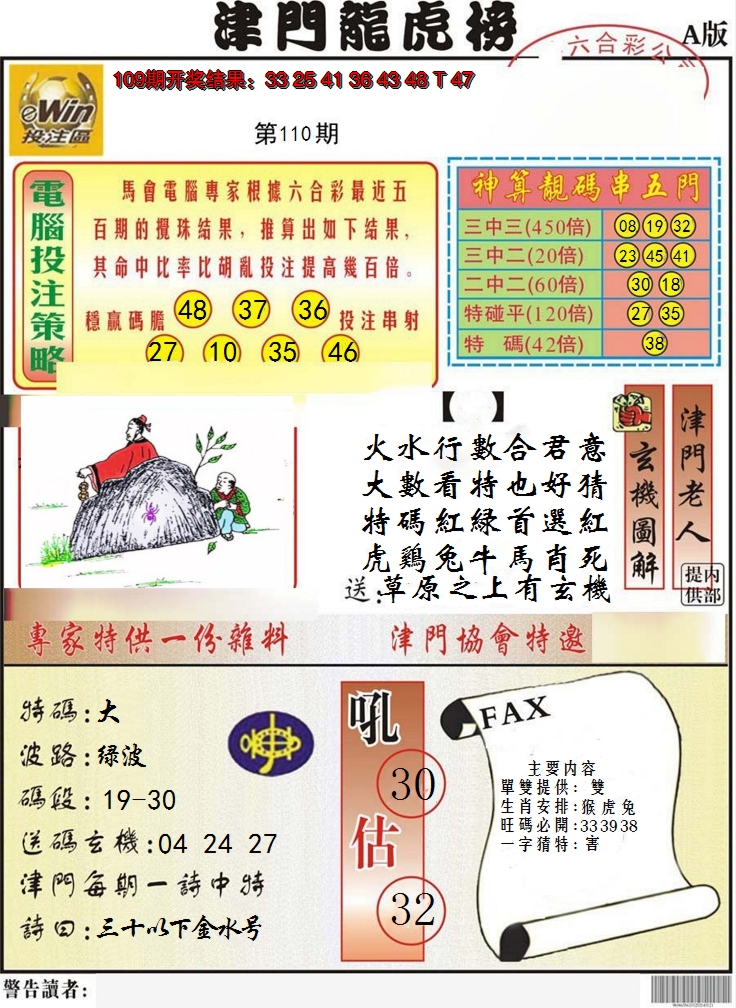 津門龍虎榜
A版
六合彩公
109期开奖结果：33 25 41 36 43 48 T 47
eWin
投注區
第110期
電腦投注策略
馬會電腦專家根據六合彩最近五
百期的攪珠结果，推算出如下结果，
其命中比率比胡亂投注提高幾百倍。
穩贏碼膽 48 37 36 投注串射
27 10 35 46
神算靚碼串五門
三中三(450倍) 08 19 32
三中二(20倍) 23 45 41
二中二(60倍) 30 18
特碰平(120倍) 27 35
特 碼(42倍) 38
【 】
火水行數合君意
大數看特也好猜
特碼紅緑首選紅
虎鷄兔牛馬肖死
送:草原之上有玄機
玄機圖解
津門老人
内部提供
專家特供一份雜料
津門協會特邀
特碼:大
波路:绿波
碼段:19-30
送碼玄機:04 24 27
津門每期一詩中特
詩曰:三十以下金水号
吼
30
估
32
FAX
主要内容
單雙提供：雙
生肖安排:猴虎兔
旺碼必開:333938
一字猜特:害
警告讀者: